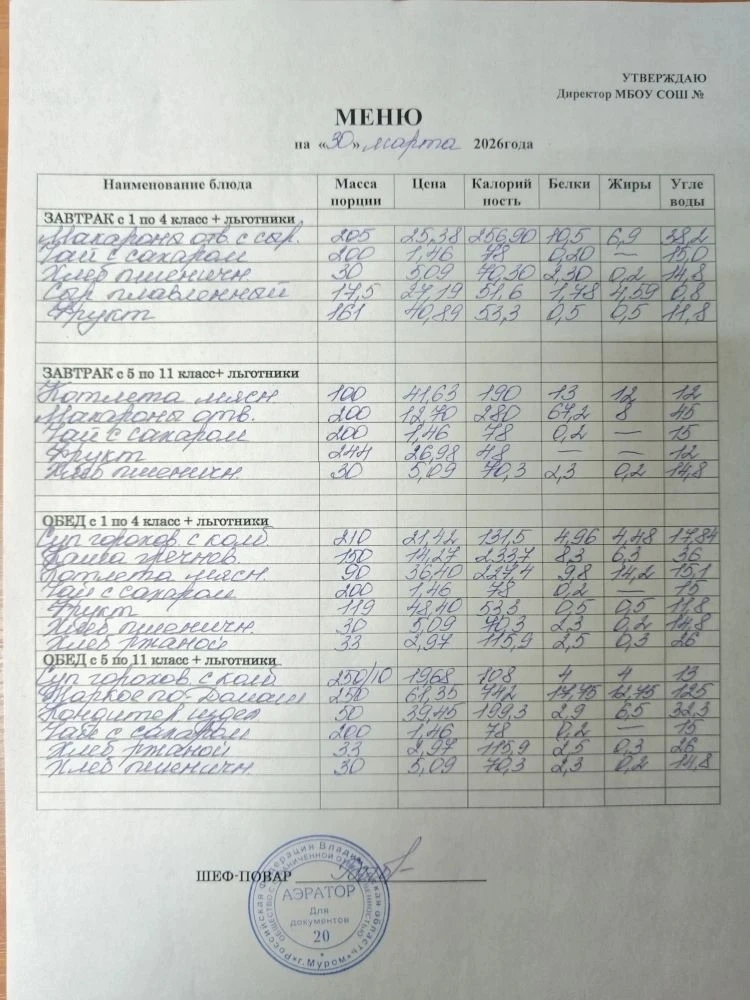 УТВЕРЖДАЮ
Директор МБОУ СОШ №
МЕНЮ
на «30» марта 2026года
Наименование блюда Масса порции Цена Калорий ность Белки Жиры Угле воды
ЗАВТРАК с 1 по 4 класс + льготники
Макароны отв. с сыр. 205 25,38 256,90 10,5 6,9 38,2
Чай с сахаром 200 1,46 78 0,20 — 15,0
Хлеб пшеничн. 30 5,09 70,30 2,30 0,2 14,8
Сыр плавленный 17,5 27,19 51,6 1,78 4,59 0,8
Фрукт 161 40,89 53,3 0,5 0,5 11,8
ЗАВТРАК с 5 по 11 класс+ льготники
Котлета мясн. 100 41,63 190 13 12 12
Макароны отв. 200 12,70 280 67,2 8 45
Чай с сахаром 200 1,46 78 0,2 — 15
Фрукт 244 26,98 48 — — 12
Хлеб пшеничн. 30 5,09 70,3 2,3 0,2 14,8
ОБЕД с 1 по 4 класс + льготники
Суп горохов с колб. 210 21,42 131,5 4,96 4,48 17,84
Каша гречнов. 150 14,27 233,7 8,3 6,3 36
Котлета мясн. 90 36,40 227,4 9,8 14,2 15,1
Чай с сахаром 200 1,46 78 0,2 — 15
Фрукт 119 48,40 53,3 0,5 0,5 11,8
Хлеб пшеничн. 30 5,09 70,3 2,3 0,2 14,8
Хлеб ржаной 33 2,97 115,9 2,5 0,3 26
ОБЕД с 5 по 11 класс + льготники
Суп горохов с колб 250/10 19,68 108 4 4 13
Жаркое по-домаш 250 68,35 742 17,75 12,75 125
Кондитер издел 50 39,45 199,3 2,9 6,5 32,3
Чай с сахаром 200 1,46 78 0,2 — 15
Хлеб ржаной 33 2,97 115,9 2,5 0,3 26
Хлеб пшеничн. 30 5,09 70,3 2,3 0,2 14,8
ШЕФ-ПОВАР
АЭРАТОР
Для
документов
20
г.Муром